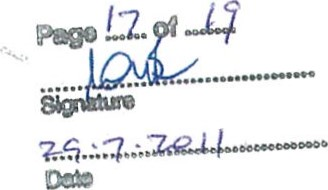 Page 17 of 19
Signature
29.7.2011
Date